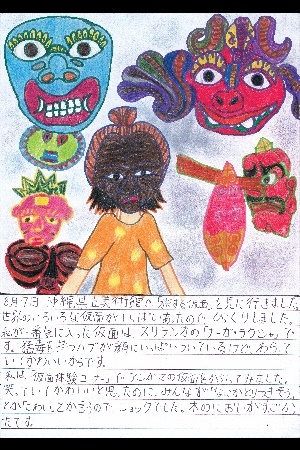 8月7日 沖縄県立美術館へ「旅する仮面」を見に行きました。
世界のいろいろな仮面がいっぱいあったので、びっくりしました。
私が一番気に入った仮面は、スリランカの「ナーガ・ラクシャ」で
す。猛毒をもつコブラが頭にいっぱいついているけど、わらって
いてかわいいからです。
私は、仮面体験コーナーで の仮面をかぶってみました。
笑っていてかわいいと思ったのに、みんな
とか「こわい」とか言うので、ショックでした。木のにおいが
たです。